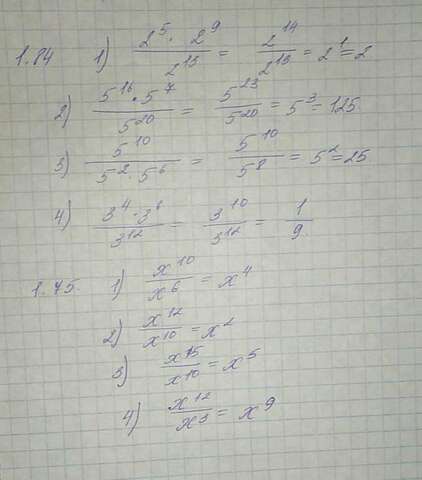 1.84 1) \frac{2^5 \cdot 2^9}{2^{13}} = \frac{2^{14}}{2^{13}} = 2^1 = 2
2) \frac{5^{16} \cdot 5^7}{5^{20}} = \frac{5^{23}}{5^{20}} = 5^3 = 125
3) \frac{5^{10}}{5^2 \cdot 5^6} = \frac{5^{10}}{5^8} = 5^2 = 25
4) \frac{3^4 \cdot 3^6}{3^{12}} = \frac{3^{10}}{3^{12}} = \frac{1}{9}
1.75. 1) \frac{x^{10}}{x^6} = x^4
2) \frac{x^{12}}{x^{10}} = x^2
3) \frac{x^{15}}{x^{10}} = x^5
4) \frac{x^{12}}{x^3} = x^9